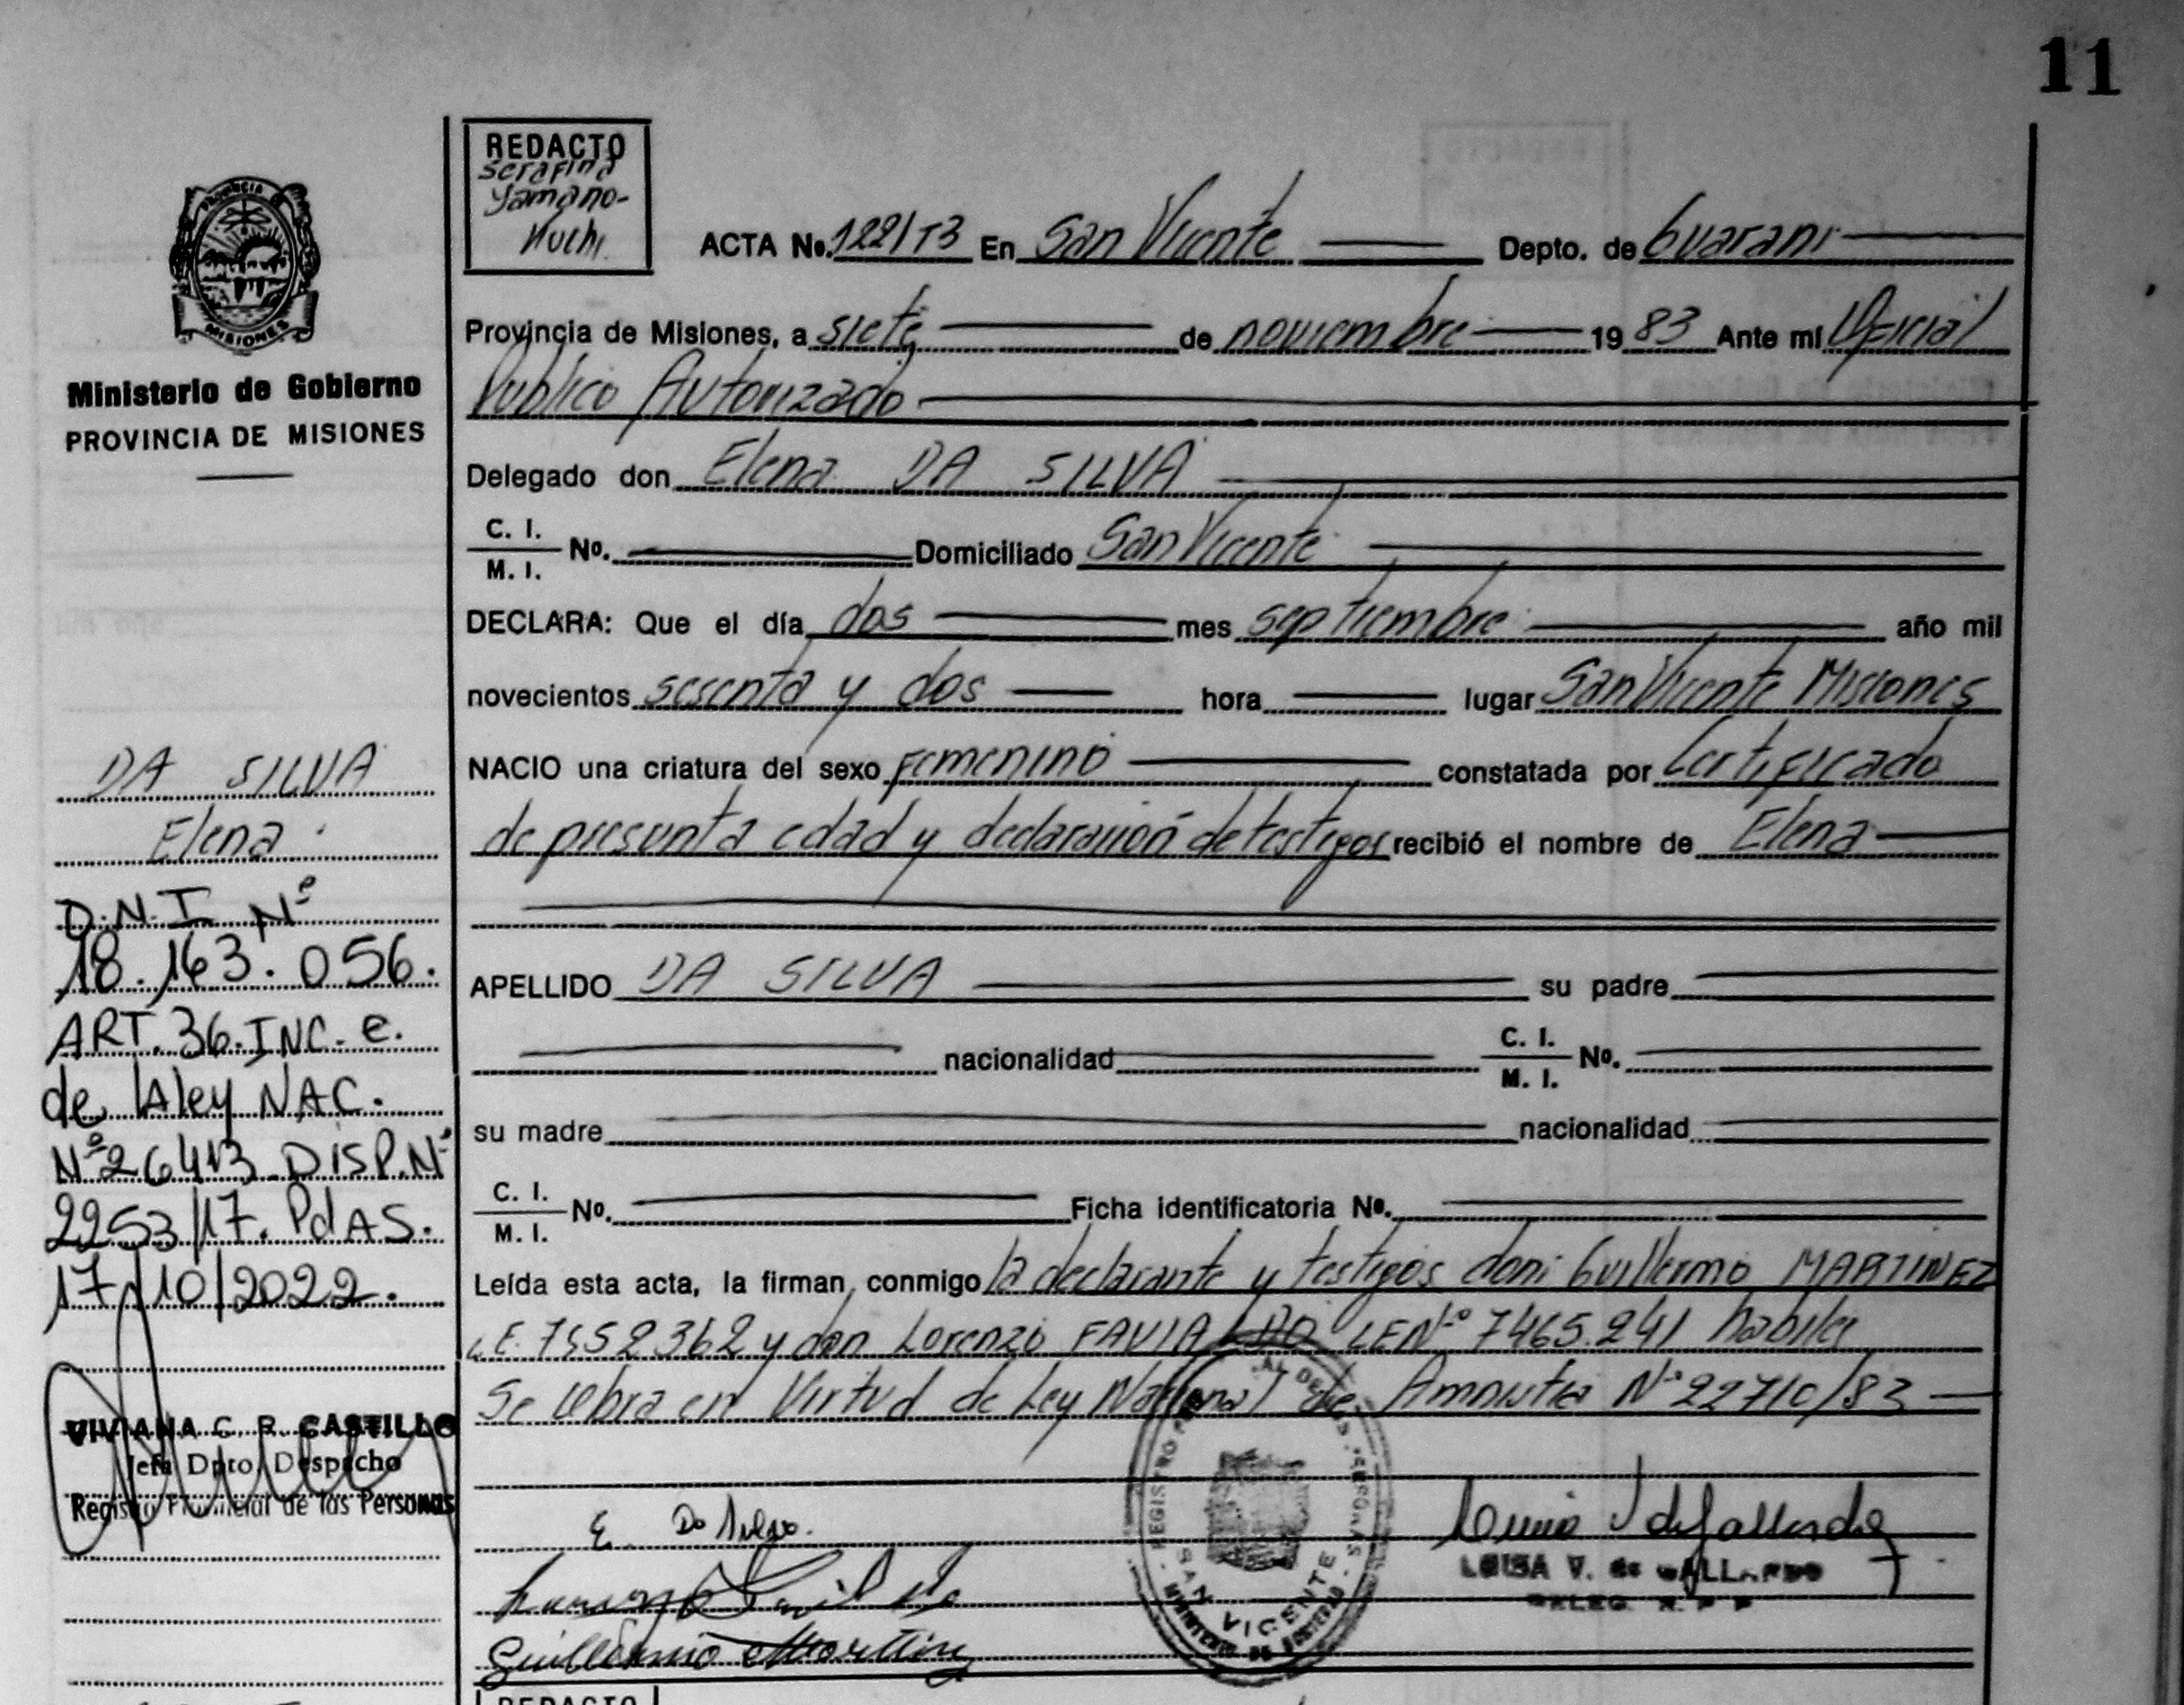 11
REDACTO
Serafina
Yamano-
Huchi
ACTA No. 122/T3 En San Vicente Depto. de Guarani
Provincia de Misiones, a siete de noviembre 1983 Ante mí Oficial
Publico Autorizado
Delegado don Elena DA SILVA
C. I.
M. I. No. Domiciliado San Vicente
DECLARA: Que el día dos mes septiembre año mil
novecientos sesenta y dos hora lugar San Vicente Misiones
NACIO una criatura del sexo Femenino constatada por Certificado
de presunta edad y declaración de testigos recibió el nombre de Elena
APELLIDO DA SILVA su padre
nacionalidad C. I.
M. I. No.
su madre nacionalidad
C. I.
M. I. No. Ficha identificatoria No.
Leída esta acta, la firman conmigo la declarante y testigos don: Guillermo MARTINEZ
LE. 7452362 y don Lorenzo LE Nº 7465.241 habiles
Se labra en Virtud de Ley Nacional de Amnistia Nº 22710/83
E. Da Silva.
Guillermo Martinez
LUISA V. de GALLARDO
DELEG. R. P. P
SAN VICENTE
PROVINCIA
MISIONES
Ministerio de Gobierno
PROVINCIA DE MISIONES
DA SILVA
Elena
D.N.I Nº
18.163.056.
ART. 36. INC. e.
de la ley NAC.
Nº 26413 DISP. Nº
2253/17. PdAS.
17/10/2022.
VIVIANA C. R. CASTILLO
Jefa Dpto. Despacho
Registro Provincial de las Personas
REDACTO